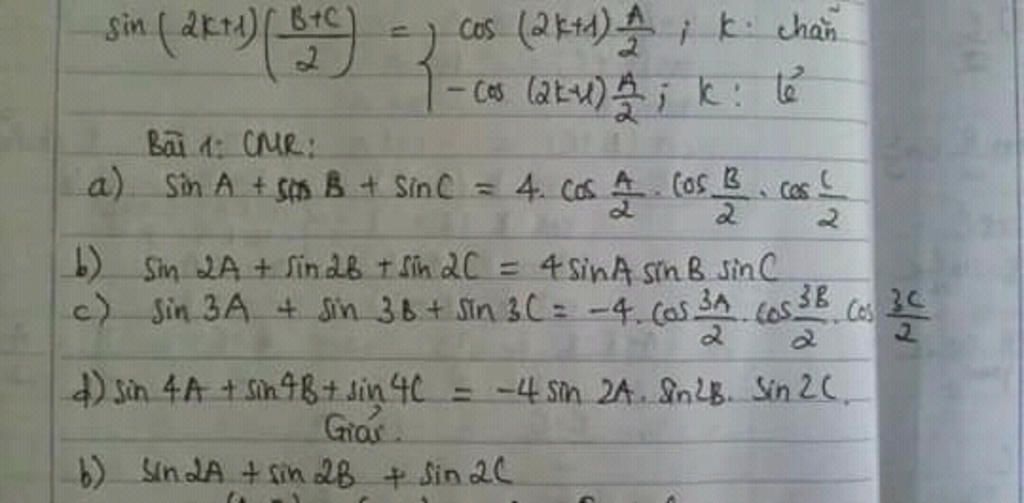 sin (2k+1)(B+C/2) = { cos (2k+1) A/2 ; k: chẵn
- cos (2k+1) A/2 ; k: lẻ
Bài 1: CMR:
a) sin A + sin B + sin C = 4. cos A/2 . cos B/2 . cos C/2
b) sin 2A + sin 2B + sin 2C = 4 sin A sin B sin C
c) sin 3A + sin 3B + sin 3C = -4. cos 3A/2 . cos 3B/2 . cos 3C/2
d) sin 4A + sin 4B + sin 4C = -4 sin 2A. sin 2B. sin 2C.
Giải.
b) sin 2A + sin 2B + sin 2C